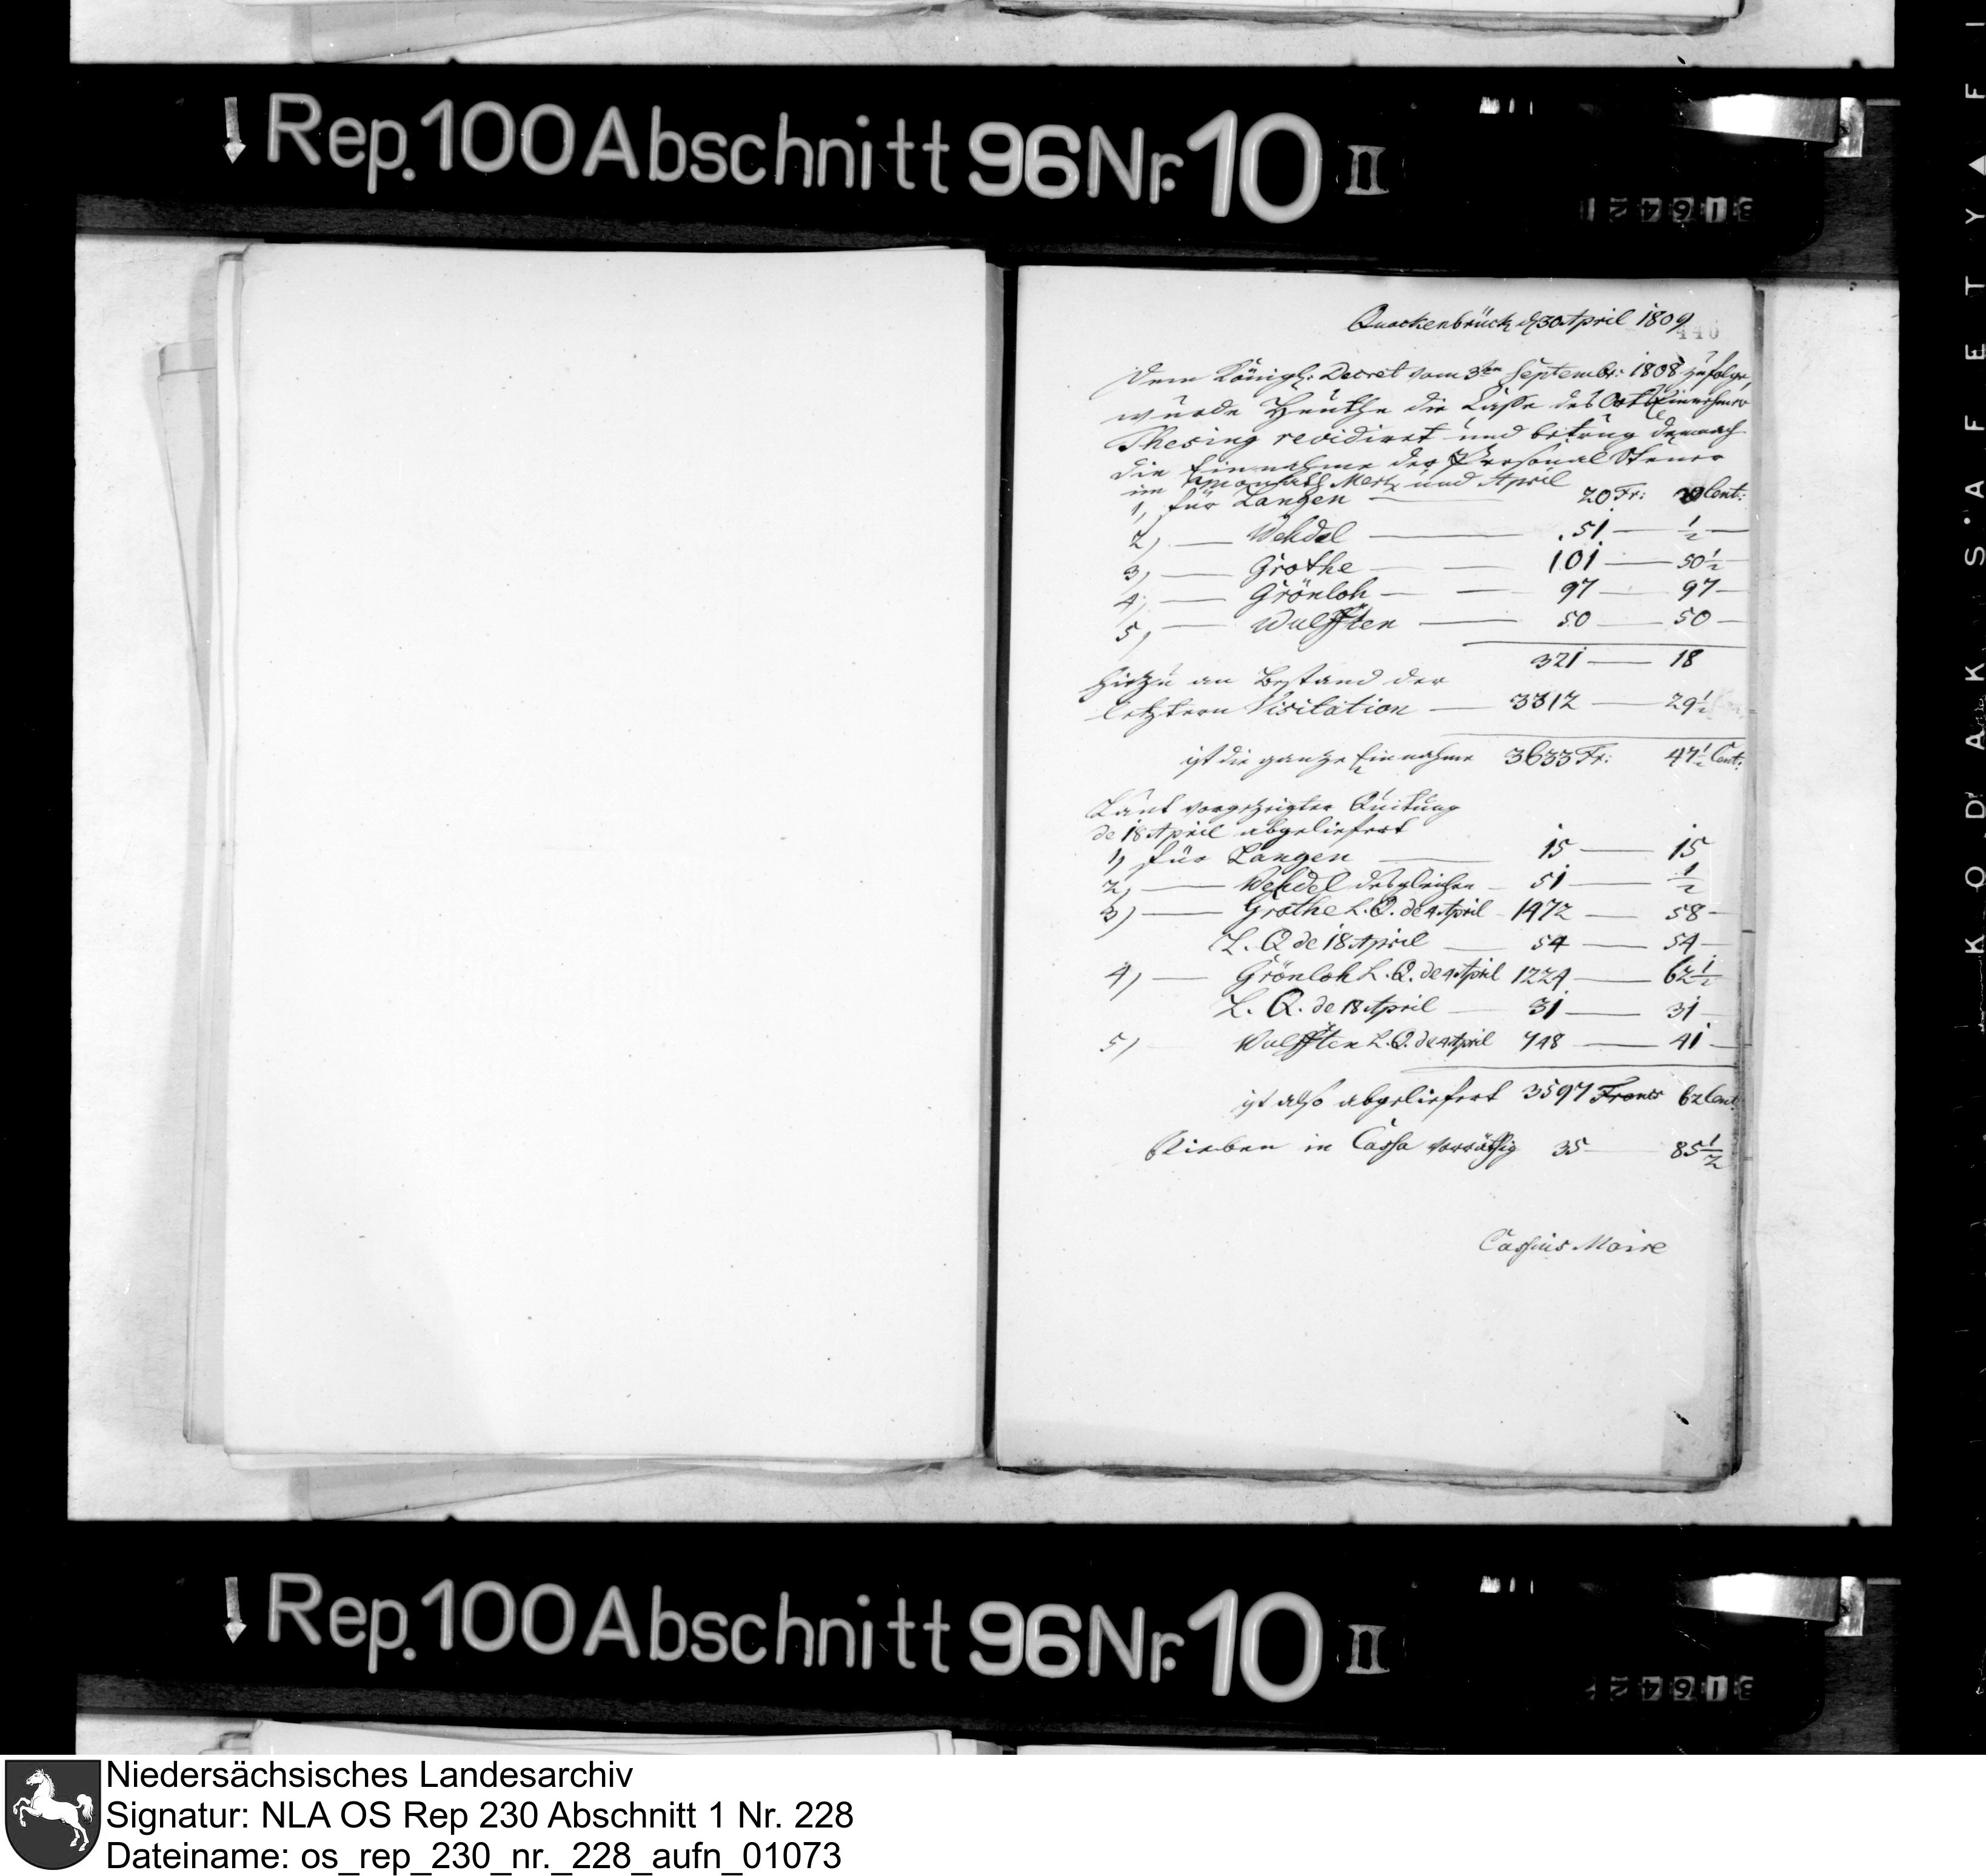 Rep. 100 Abschnitt 96 Nr. 10 II
Quackenbrück d 30 April 1809
440
Dem Königl: Decret vom 3ten Septembr: 1808 zufolge,
wurde Heuthe die Casse des Orts Einnehmer
Thesing revidiret und betrug demnach
die Einnahme der Personal Steuer
im Monath Mertz und April
1, für Langen — 20 Fr: 20 Cent:
2) — Wehdel — 51 — ½ —
3) — Grothe — 101 — 50½
4) — Grönloh — 97 — 97 —
5) — Wulfften — 50 — 50 —
321 — 18
Hiezu an Bestand der
letztern Visitation — 3312 — 29½
ist die ganze Einnahme 3633 Fr: 47½ Cent:
Laut vorgezeigter Quitung
de 18 April abgeliefert
1) für Langen — 15 — 15
2) — Wehdel desgleichen — 51 — ½
3) — Grothe L. Q. de 4 April 1472 — 58 —
L. Q de 18 April — 54 — 54 —
4) — Grönloh L. Q. de 4 April 1224 — 62½
L. Q. de 18 April — 31 — 31 —
5) Wulfften L. Q. de 4 April 748 — 41 —
ist also abgeliefert 3597 Francs 62 Cent:
Blieben in Cassa vorräthig 35 — 85½
Cassius Maire
Rep. 100 Abschnitt 96 Nr. 10 II
KODAK SAFETY FI
Niedersächsisches Landesarchiv
Signatur: NLA OS Rep 230 Abschnitt 1 Nr. 228
Dateiname: os_rep_230_nr._228_aufn_01073